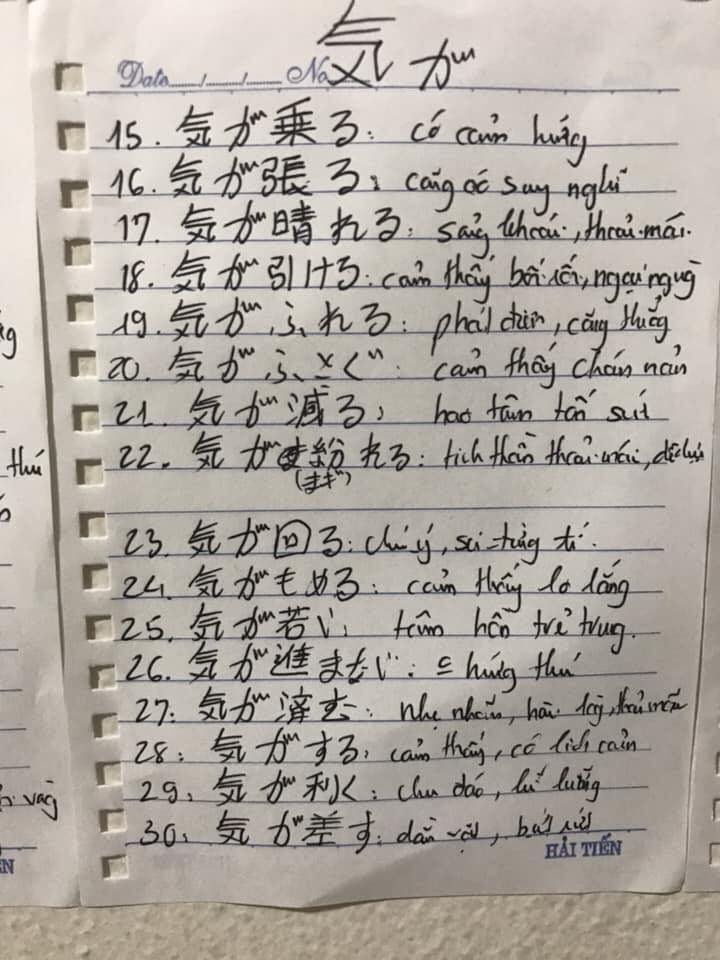 気が
Date / / No
15. 気が乗る: có cảm hứng
16. 気が張る: căng óc suy nghĩ
17. 気が晴れる: sảng khoái, thoải mái.
18. 気が引ける: cảm thấy bối rối, ngại ngùng
19. 気がふれる: phát điên, căng thẳng
20. 気がふさぐ: cảm thấy chán nản
21. 気が減る: hao tâm tổn sức
22. 気が紛れる: tinh thần thoải mái,
(まぎ)
23. 気が回る: chú ý, suy từng tí.
24. 気がもめる: cảm thấy lo lắng
25. 気が若い: tâm hồn trẻ trung.
26. 気が進まない: hứng thú
27: 気が済む: nhẹ nhõm, hài lòng, thỏa mãn
28: 気がする: cảm thấy, có linh cảm
29: 気が利く: chu đáo, kĩ lưỡng
30: 気が差す: dằn vặt, bứt rứt
HẢI TIẾN
thú
vàng